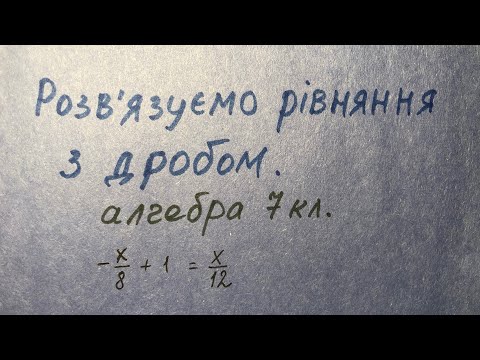 Розв'язуємо рівняння
з дробом.
алгебра 7 кл.
-x/8 + 1 = x/12